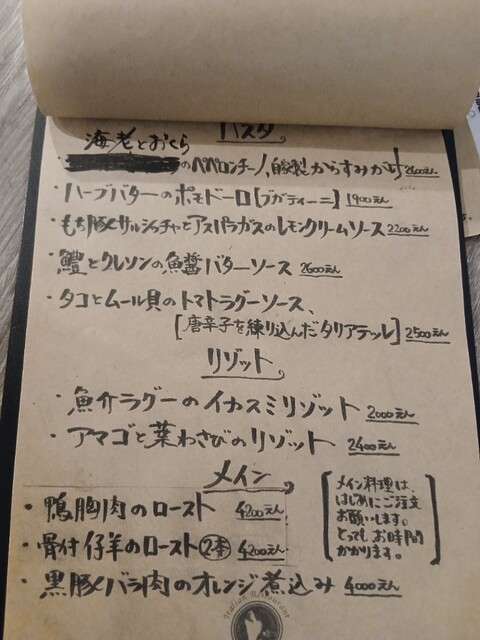 パスタ
海老とおくら
のペペロンチーノ、自家製からすみがけ 2600えん
・ハーブバターのポモドーロ[ブガティーニ] 1900えん
・もち豚サルシッチャとアスパラガスのレモンクリームソース 2200えん
・鱧とクレソンの魚醤バターソース 2600えん
・タコとムール貝のトマトラグーソース、
[唐辛子を練り込んだタリアテッレ] 2500えん
リゾット
・魚介ラグーのイカスミリゾット 2000えん
・アマゴと葉わさびのリゾット 2400えん
メイン
・鴨胸肉のロースト 4200えん
・骨付仔羊のロースト②本 4200えん
・黒豚バラ肉のオレンジ煮込み 4000えん
メイン料理は、
はじめにご注文
お願いします。
とってもお時間
かかります。
Italian Restaurant